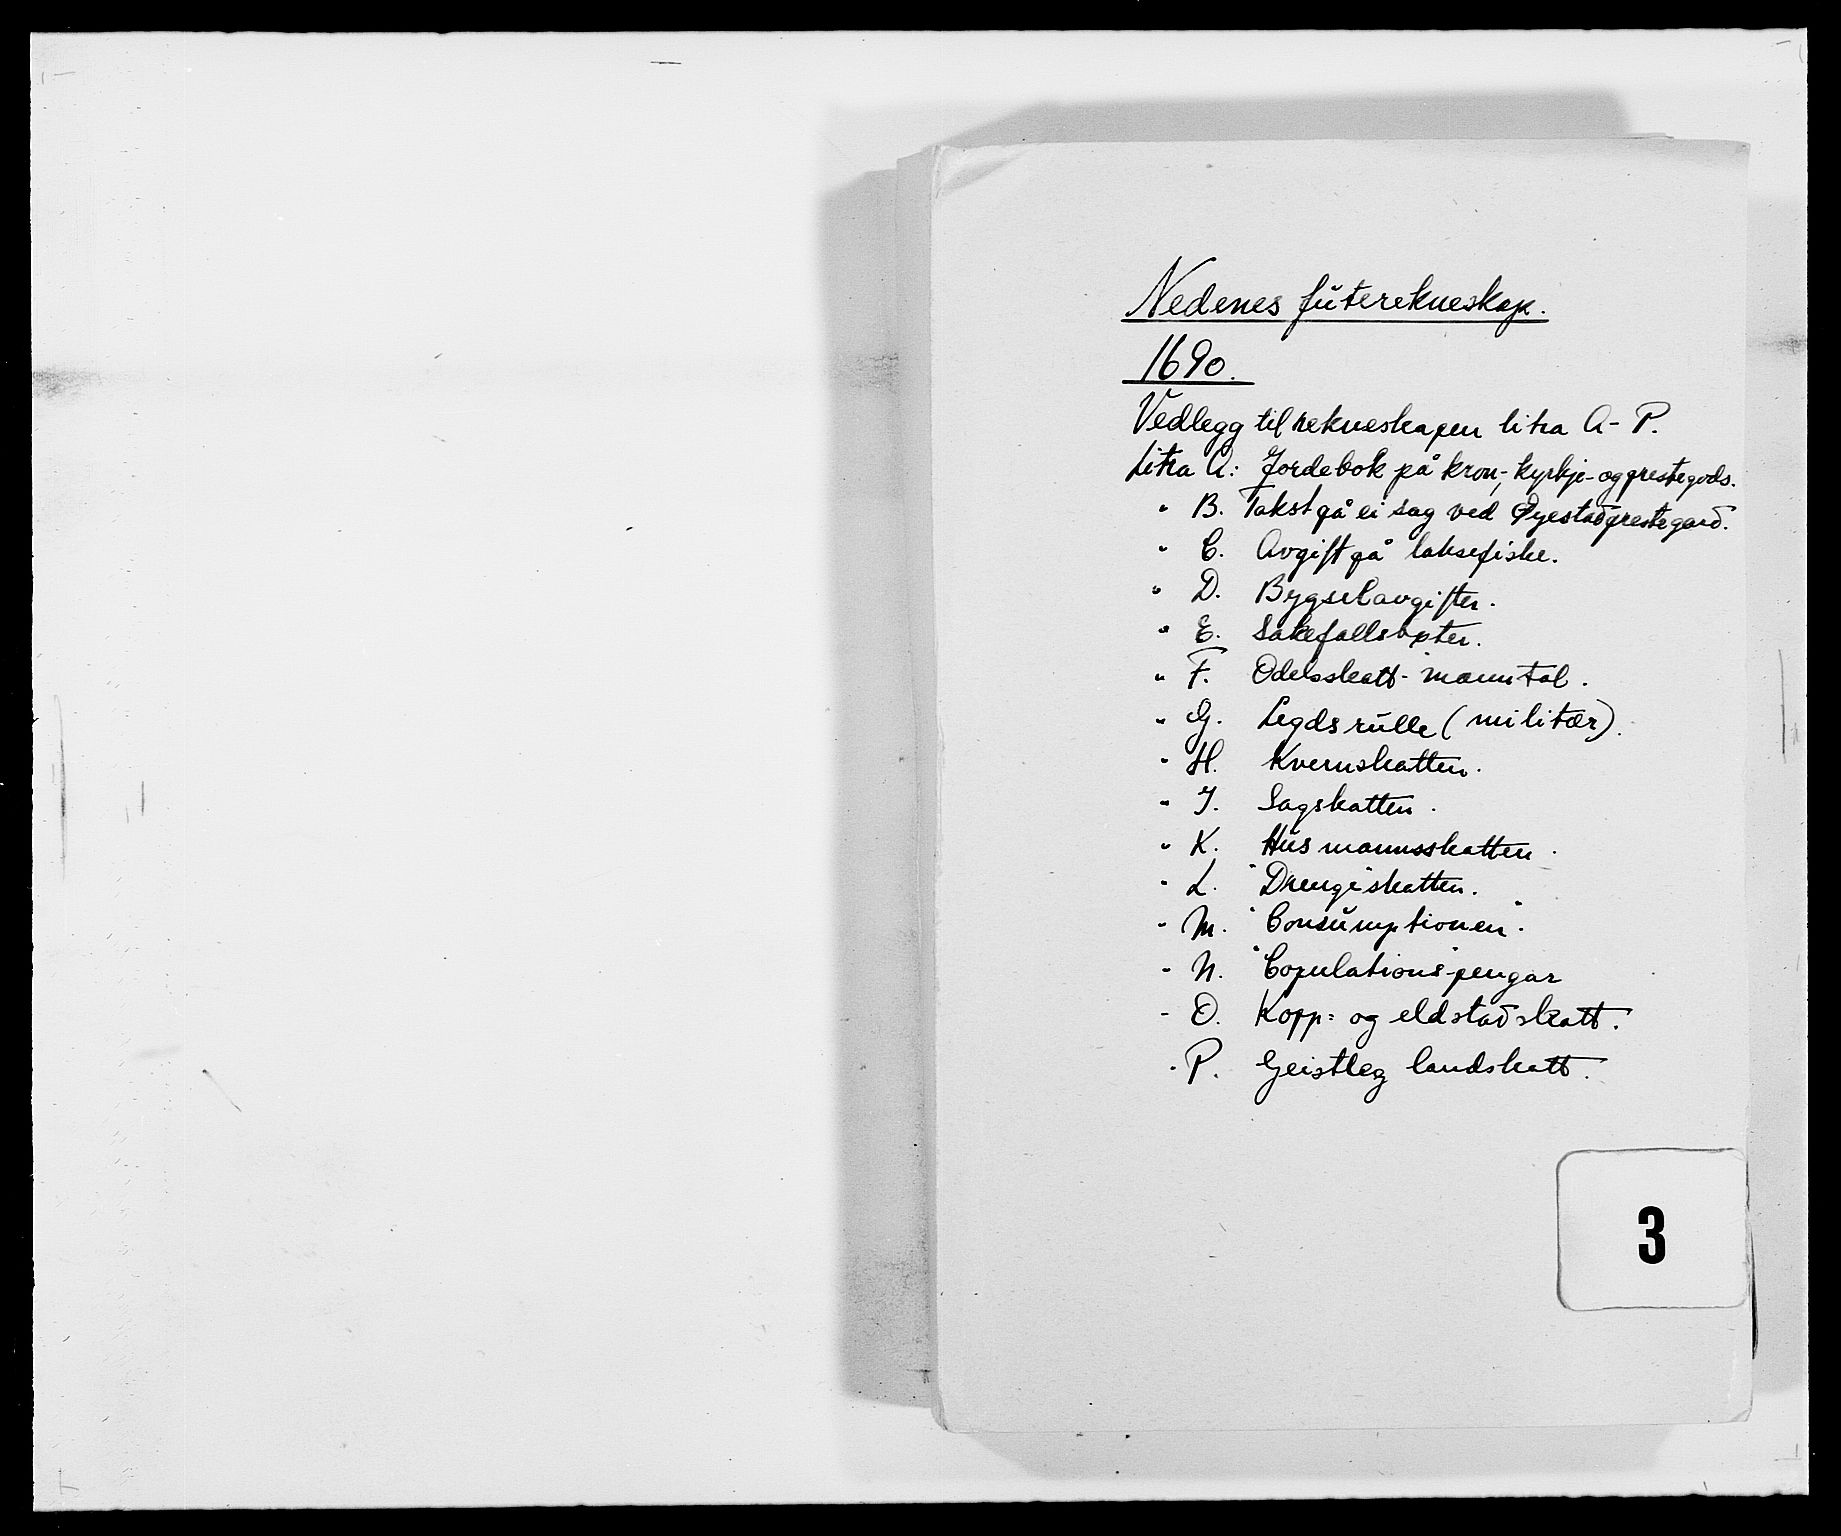 Nedenes futerekneskap.
1690.
Vedlegg til rekneskapen litra A - P.
Litra A: Jordebok på kron-, kyrkje- og prestegods.
" B. Takst på ei sag ved Øyestad prestegard.
" C. Avgift på laksefiske.
" D. Bygselavgifter.
" E. Sakefallsbøter.
" F. Odelsskatt-manntal.
" G. Legdsrulle (militær).
" H. Kvernskatten.
" I. Sagskatten.
" K. Husmannsskatten.
" L. "Drenge"skatten.
" M. "Consumptionen".
" N. "Copulations"pengar
" O. Kopp- og eldstadskatt.
" P. Geistleg landskatt.
3